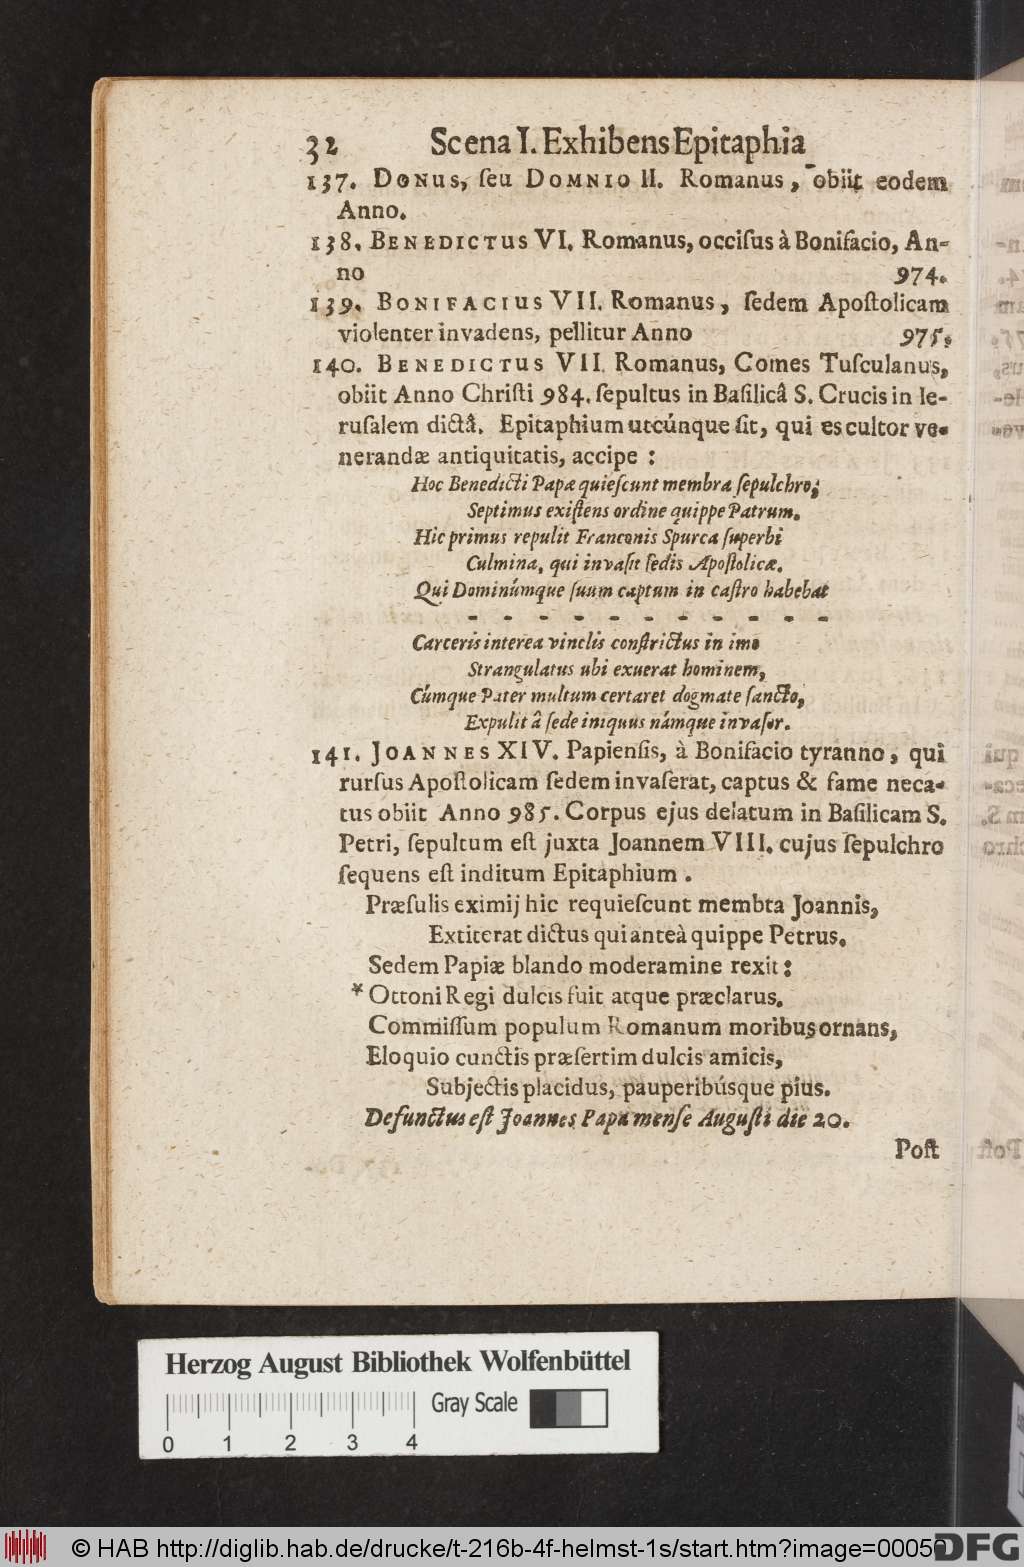 32 Scena I. Exhibens Epitaphia
137. Donus, ſeu Domnio II. Romanus, obiit eodem
Anno.
138. Benedictus VI. Romanus, occiſus à Bonifacio, An-
no 974.
139. Bonifacius VII. Romanus, ſedem Apoſtolicam
violenter invadens, pellitur Anno 975.
140. Benedictus VII. Romanus, Comes Tuſculanus,
obiit Anno Chriſti 984. ſepultus in Baſilicâ S. Crucis in Ie-
ruſalem dictâ. Epitaphium utcúnque ſit, qui es cultor ve-
nerandæ antiquitatis, accipe:
Hoc Benedicti Papæ quieſcunt membra ſepulchro;
Septimus exiſtens ordine quippe Patrum.
Hic primus repulit Franconis Spurca ſuperbi
Culmina, qui invaſit ſedis Apoſtolicæ.
Qui Dominúmque ſuum captum in caſtro habebat
- - - - - - - - - - -
Carceris interea vinclis conſtrictus in imo
Strangulatus ubi exuerat hominem,
Cúmque Pater multum certaret dogmate ſancto,
Expulit â ſede iniquus námque invaſor.
141. Joannes XIV. Papienſis, à Bonifacio tyranno, qui
rurſus Apoſtolicam ſedem invaſerat, captus & fame neca-
tus obiit Anno 985. Corpus ejus delatum in Baſilicam S.
Petri, ſepultum eſt juxta Joannem VIII. cujus ſepulchro
ſequens eſt inditum Epitaphium.
Præſulis eximij hic requieſcunt membta Joannis,
Extiterat dictus qui anteà quippe Petrus.
Sedem Papiæ blando moderamine rexit:
* Ottoni Regi dulcis fuit atque præclarus.
Commiſſum populum Romanum moribus ornans,
Eloquio cunctis præſertim dulcis amicis,
Subjectis placidus, pauperibúsque pius.
Defunctus eſt Joannes Papa menſe Auguſti die 20.
Poſt
Herzog August Bibliothek Wolfenbüttel
Gray Scale
0 1 2 3 4
© HAB http://diglib.hab.de/drucke/t-216b-4f-helmst-1s/start.htm?image=00050
DFG